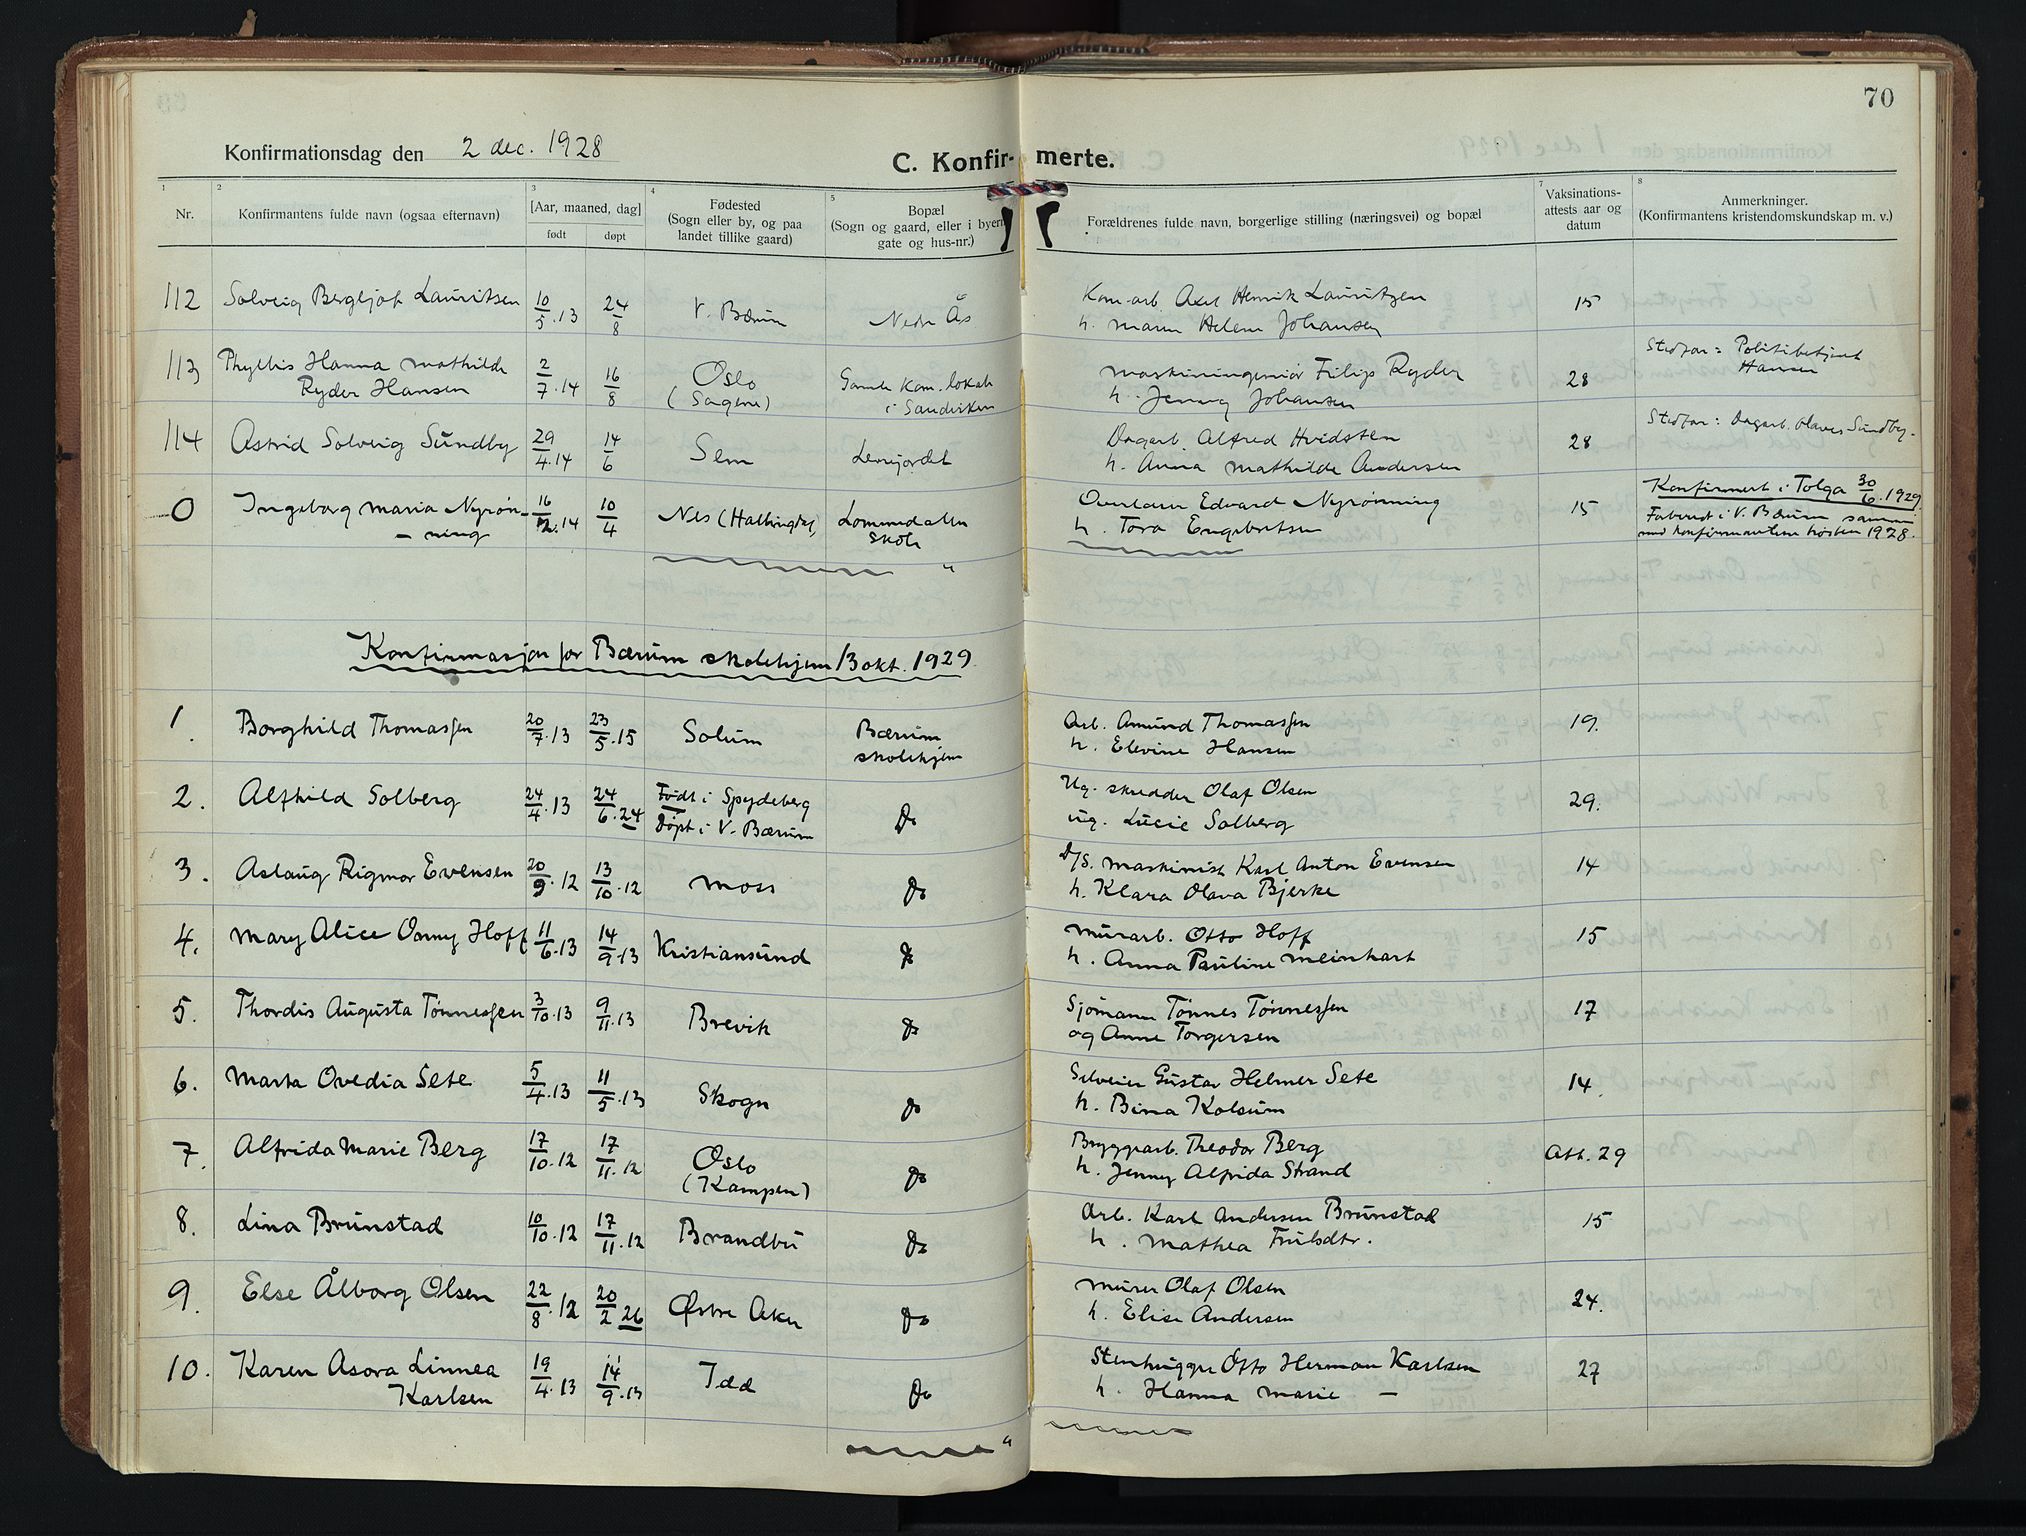 70
Konfirmationsdag den 2 dec. 1928
C. Konfir- merte.
1 2 3 4 5 7 8
Nr.
Konfirmantens fulde navn (ogsaa efternavn)
[Aar, maaned, dag]
født døpt
Fødested
(Sogn eller by, og paa
landet tillike gaard)
Bopæl
(Sogn og gaard, eller i byen
gate og hus-nr.)
Forældrenes fulde navn, borgerlige stilling (næringsvei) og bopæl
Vaksinations-
attests aar og
datum
Anmerkninger.
(Konfirmantens kristendomskundskap m. v.)
112 Solveig Bergljot Lauritsen 10/5.13 24/8 V. Bærum Nedre Ås Kom.arb. Axel Henrik Lauritzen 15
h. Marie Helene Johansen
113 Phyllis Hanna Mathilde 2/7.14 16/8 Oslo Gamle Kom.lokale Maskiningeniør Filip Ryder 28 Stedfar: Politibetjent
Ryder Hansen (Sagene) i Sandviken h. Jenny Johansen Hansen
114 Astrid Solveig Sundby 29/4.14 14/6 Sem Levrejordet Dagarb. Alfred Hvidsten 28 Stedfar: Dagarb. Olaves Sundby.
h. Anna Mathilde Andersen
0 Ingeborg Maria Nyrøn- 16/2.14 10/4 Nes (Hallingdal) Lommedalen Overlærer Edvard Nyrønning 15 Konfirmert i Tolga 30/6.1929
- ning skole h. Tora Engebretsen Forberedt i V. Bærum sammen
med konfirmantene høsten 1928.
Konfirmasjon for Bærum skolehjem 13 okt. 1929
1. Borghild Thomassen 20/7.13 23/5.15 Solum Bærum Arb. Amund Thomassen 19.
skolehjem h. Elevine Hansen
2. Alfhild Solberg 24/4.13 24/6.24 Født i Spydeberg Do Ug. skredder Olaf Olsen 29.
Døpt i V. Bærum ug. Lucie Solberg
3. Aslaug Rigmor Evensen 20/9.12 13/10.12 Moss Do D/S. maskinist Karl Anton Evensen 14
h. Klara Olava Bjerke
4. Mary Alice Onny Hoff 11/6.13 14/9.13 Kristiansund Do Murarb. Otto Hoff 15
h. Anna Pauline Meinhart
5. Thordis Augusta Tønnessen 3/10.13 9/11.13 Brevik Do Sjømann Tønnes Tønnessen 17
og Anne Torgersen
6. Marta Ovedia Sete 5/4.13 11/5.13 Skogn Do Selveier Gustav Helmer Sete 14.
h. Bina Kolsum
7. Alfrida Marie Berg 17/10.12 17/11.12 Oslo Do Bryggearb. Theodor Berg Att. 29
(Kampen) h. Jenny Alfrida Strand
8. Lina Brunstad 10/10.12 17/11.12 Brandbu Do Arb. Karl Andersen Brunstad 15
h. Mathea
9. Else Ålborg Olsen 22/8.12 20/2 26 Østre Aker Do Murer Olaf Olsen 24.
h. Elise Andersen
10. Karen Asora Linnea 19/4.13 14/9.13 Idd Do Stenhugger Otto Herman Karlsen 27
Karlsen h. Hanna Marie —